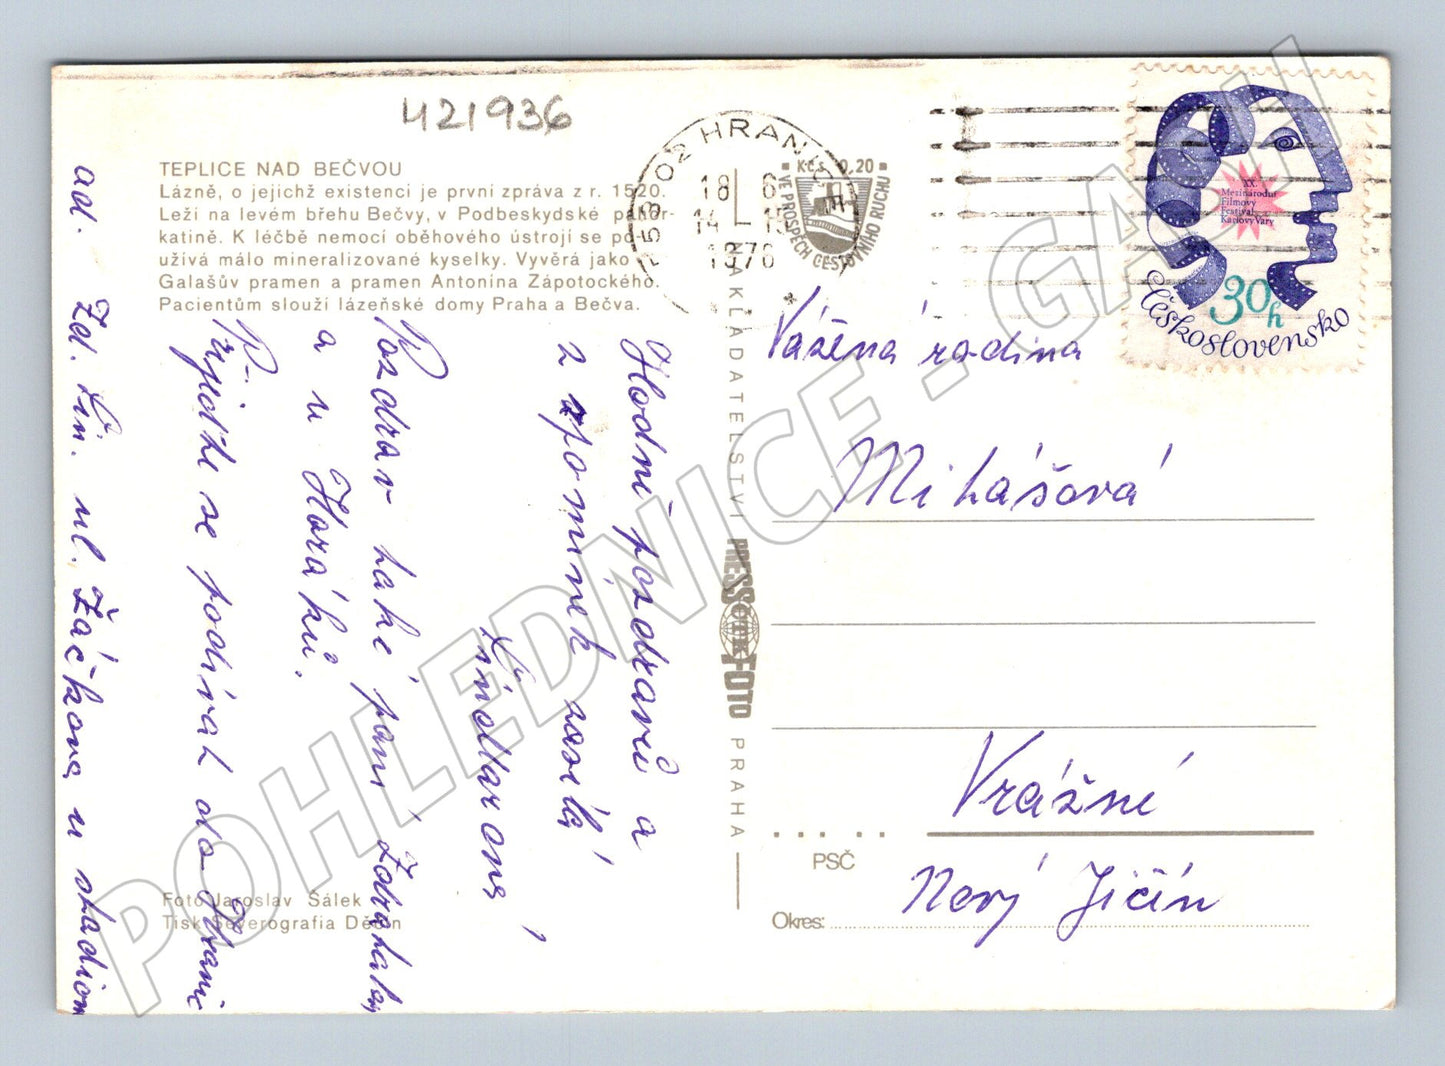 421936
TEPLICE NAD BEČVOU
Lázně, o jejichž existenci je první zpráva z r. 1520.
Leží na levém břehu Bečvy, v Podbeskydské pahor-
katině. K léčbě nemocí oběhového ústrojí se po-
užívá málo mineralizované kyselky. Vyvěrá jako
Galašův pramen a pramen Antonína Zápotockého.
Pacientům slouží lázeňské domy Praha a Bečva.
Hodně pozdravů a
vzpomínek zasílá
Pozdrav také paní
a u Horáků.
Přijďte se podívat do Hranic
ad. Zd. Lin. ul. Žáčkova u stadion
Foto Jaroslav Šálek
Tisk Severografia Děčín
NAKLADATELSTVÍ PRESSFOTO PRAHA
ČTK
753 02 HRANICE
18 6
14 - 15
1976
Kčs 0,20
VE PROSPĚCH CESTOVNÍHO RUCHU
XX.
Mezinárodní
Filmový
Festival
Karlovy Vary
30h
Československo
Vážená rodina
Mihášová
Vrážné
PSČ
Nový Jičín
Okres:
POHLEDNICE - GASH